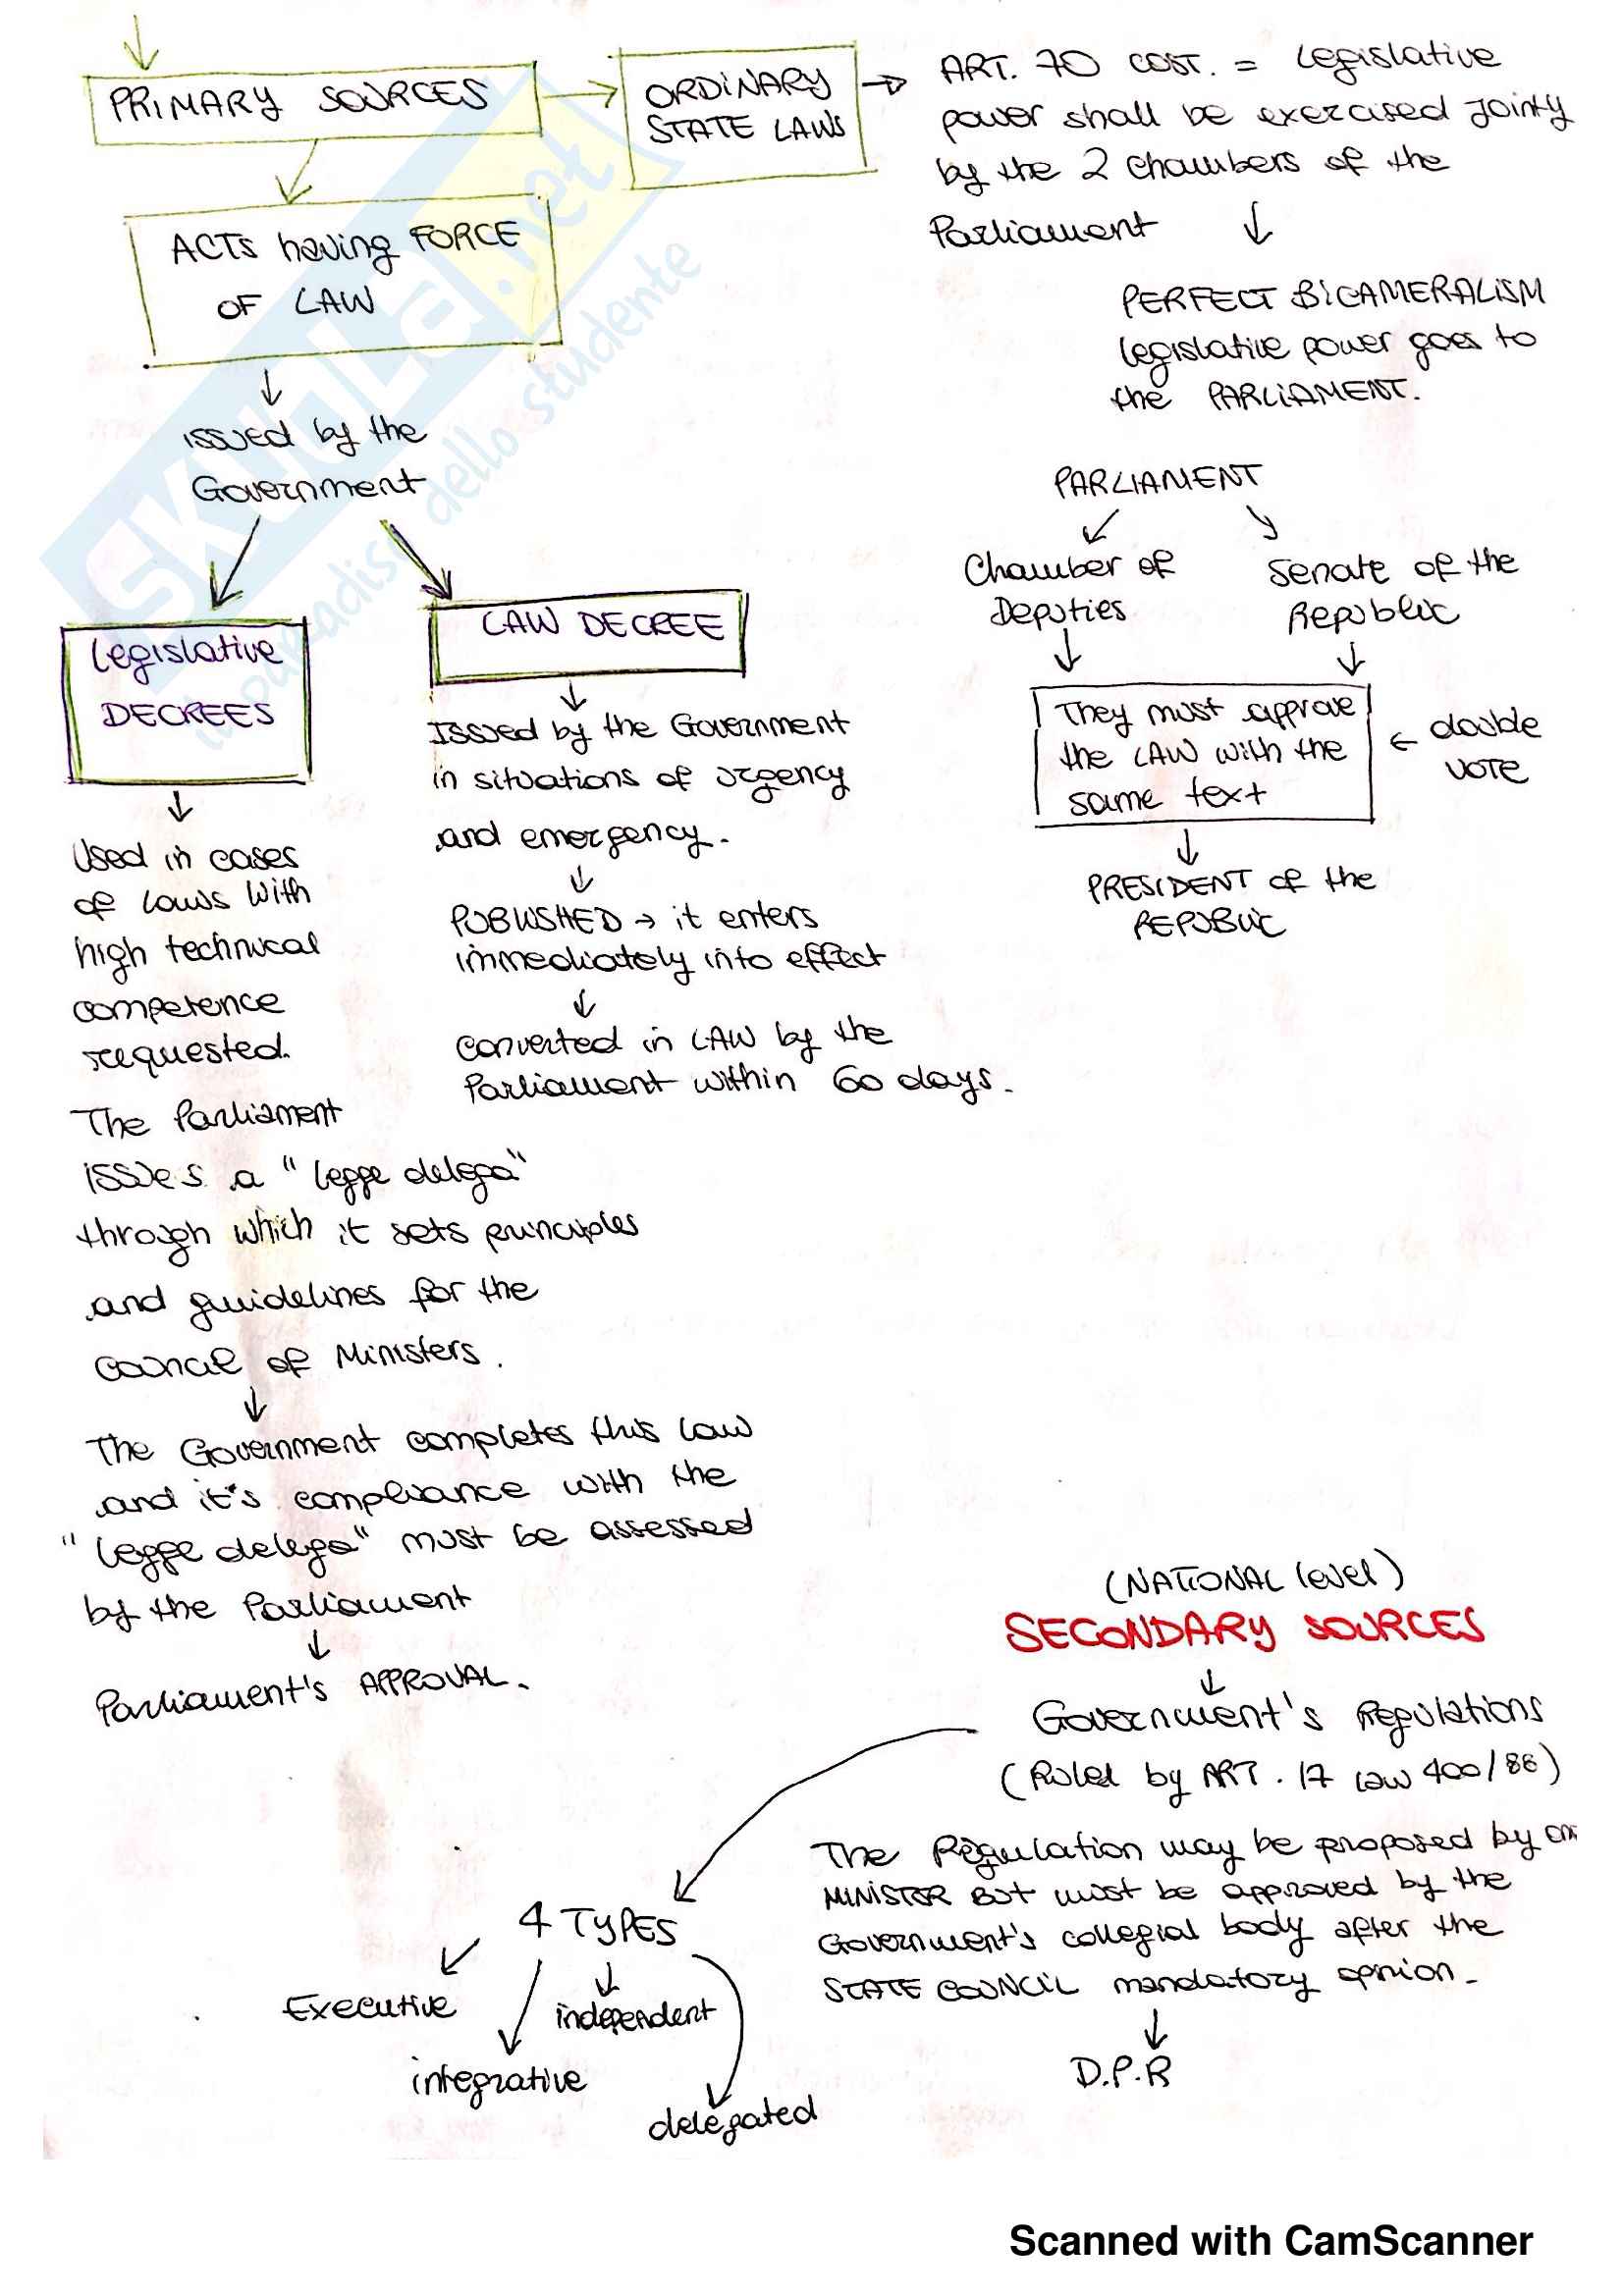 PRIMARY SOURCES
ORDINARY
STATE LAWS
ART. 70 COST. = Legislative
power shall be exercised Jointy
by the 2 chambers of the
Parliament
PERFECT BICAMERALISM
Legislative power goes to
the PARLIAMENT.
ACTS having FORCE
OF LAW
issued by the
Government
PARLIAMENT
Chamber of
Deputies
Senate of the
Republic
They must approve
the LAW with the
same text
double
VOTE
PRESIDENT of the
REPUBLIC
Legislative
DECREES
Used in cases
of laws With
high technical
competence
requested.
The Parliament
issues a "legge delega"
through which it sets principles
and guidelines for the
Council of Ministers.
The Government completes this law
and it's compliance with the
"legge delega" must be assessed
by the Parliament
Parliament's APPROVAL.
LAW DECREE
Issued by the Government
in situations of urgency
and emergency.
PUBLISHED → it enters
immediately into effect
converted in LAW by the
Parliament within 60 days.
(NATIONAL level)
SECONDARY SOURCES
Government's Regulations
(Ruled by ART. 17 law 400/88)
The Regulation may be proposed by one
MINISTER BUT must be approved by the
Government's collegial body after the
STATE COUNCIL mandatory opinion.
D.P.R
4 TYPES
Executive
independent
integrative
delegated
SKUOLA.net
il paradiso dello studente
Scanned with CamScanner